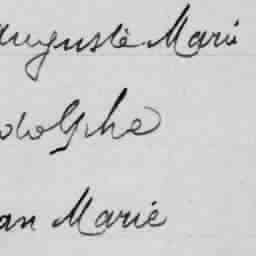 Auguste Marie
dolphe
an Marie